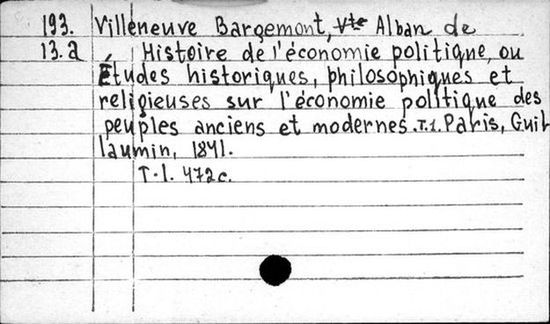 193. Villeneuve Bargemont, Vte Alban de
13.a Histoire de l'économie politique, ou
Études historiques, philosophiques et
religieuses sur l'économie politique des
peuples anciens et modernes. T.1. Paris, Guil
laumin, 1841.
T.1. 472c.